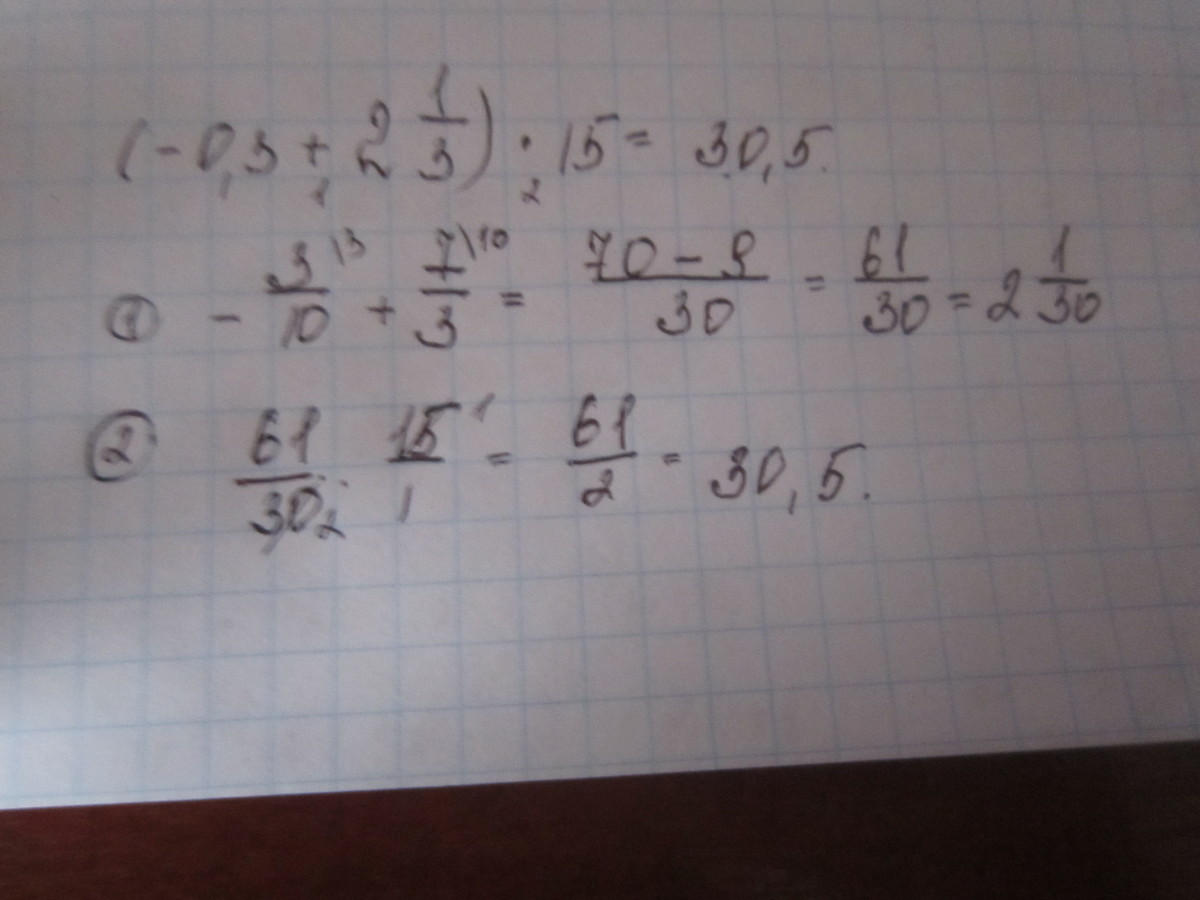 (-0,3 + 2 1/3) · 15 = 30,5.
1 2
① - 3/10 \3 + 7/3 \10 = 70-9/30 = 61/30 = 2 1/30
② 61/30 2 · 15/1 1 = 61/2 = 30,5.